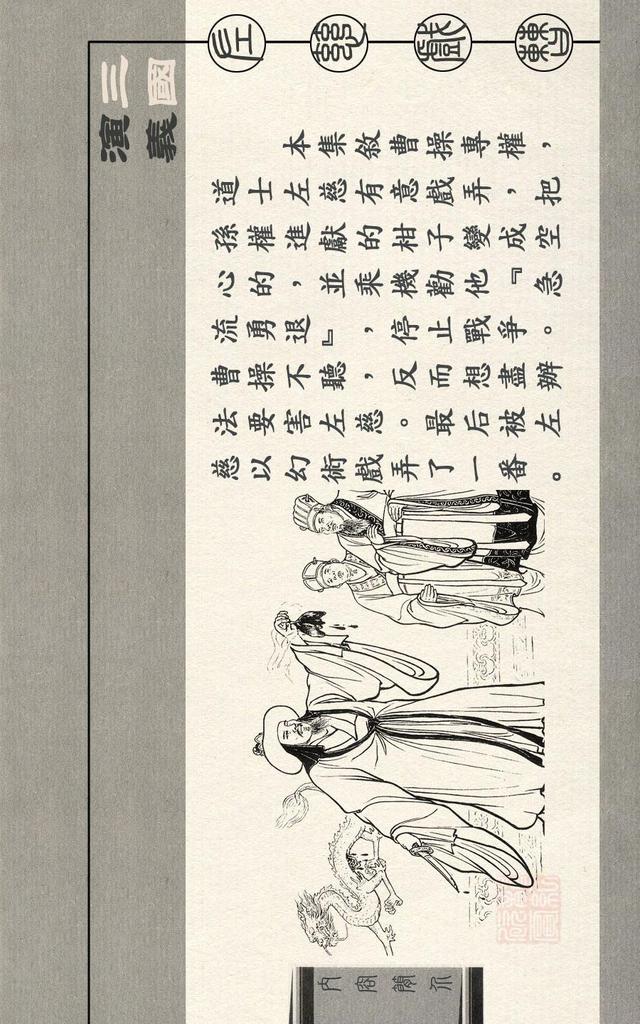 三國
演義
左慈戲曹
本集敘曹操專權，
道士左慈有意戲弄，把
孫權進獻的柑子變成空
心的，並乘機勸他『急
流勇退』，停止戰爭。
曹操不聽，反而想盡辦
法要害左慈。最后被左
慈以幻術戲弄了一番。
内容簡介